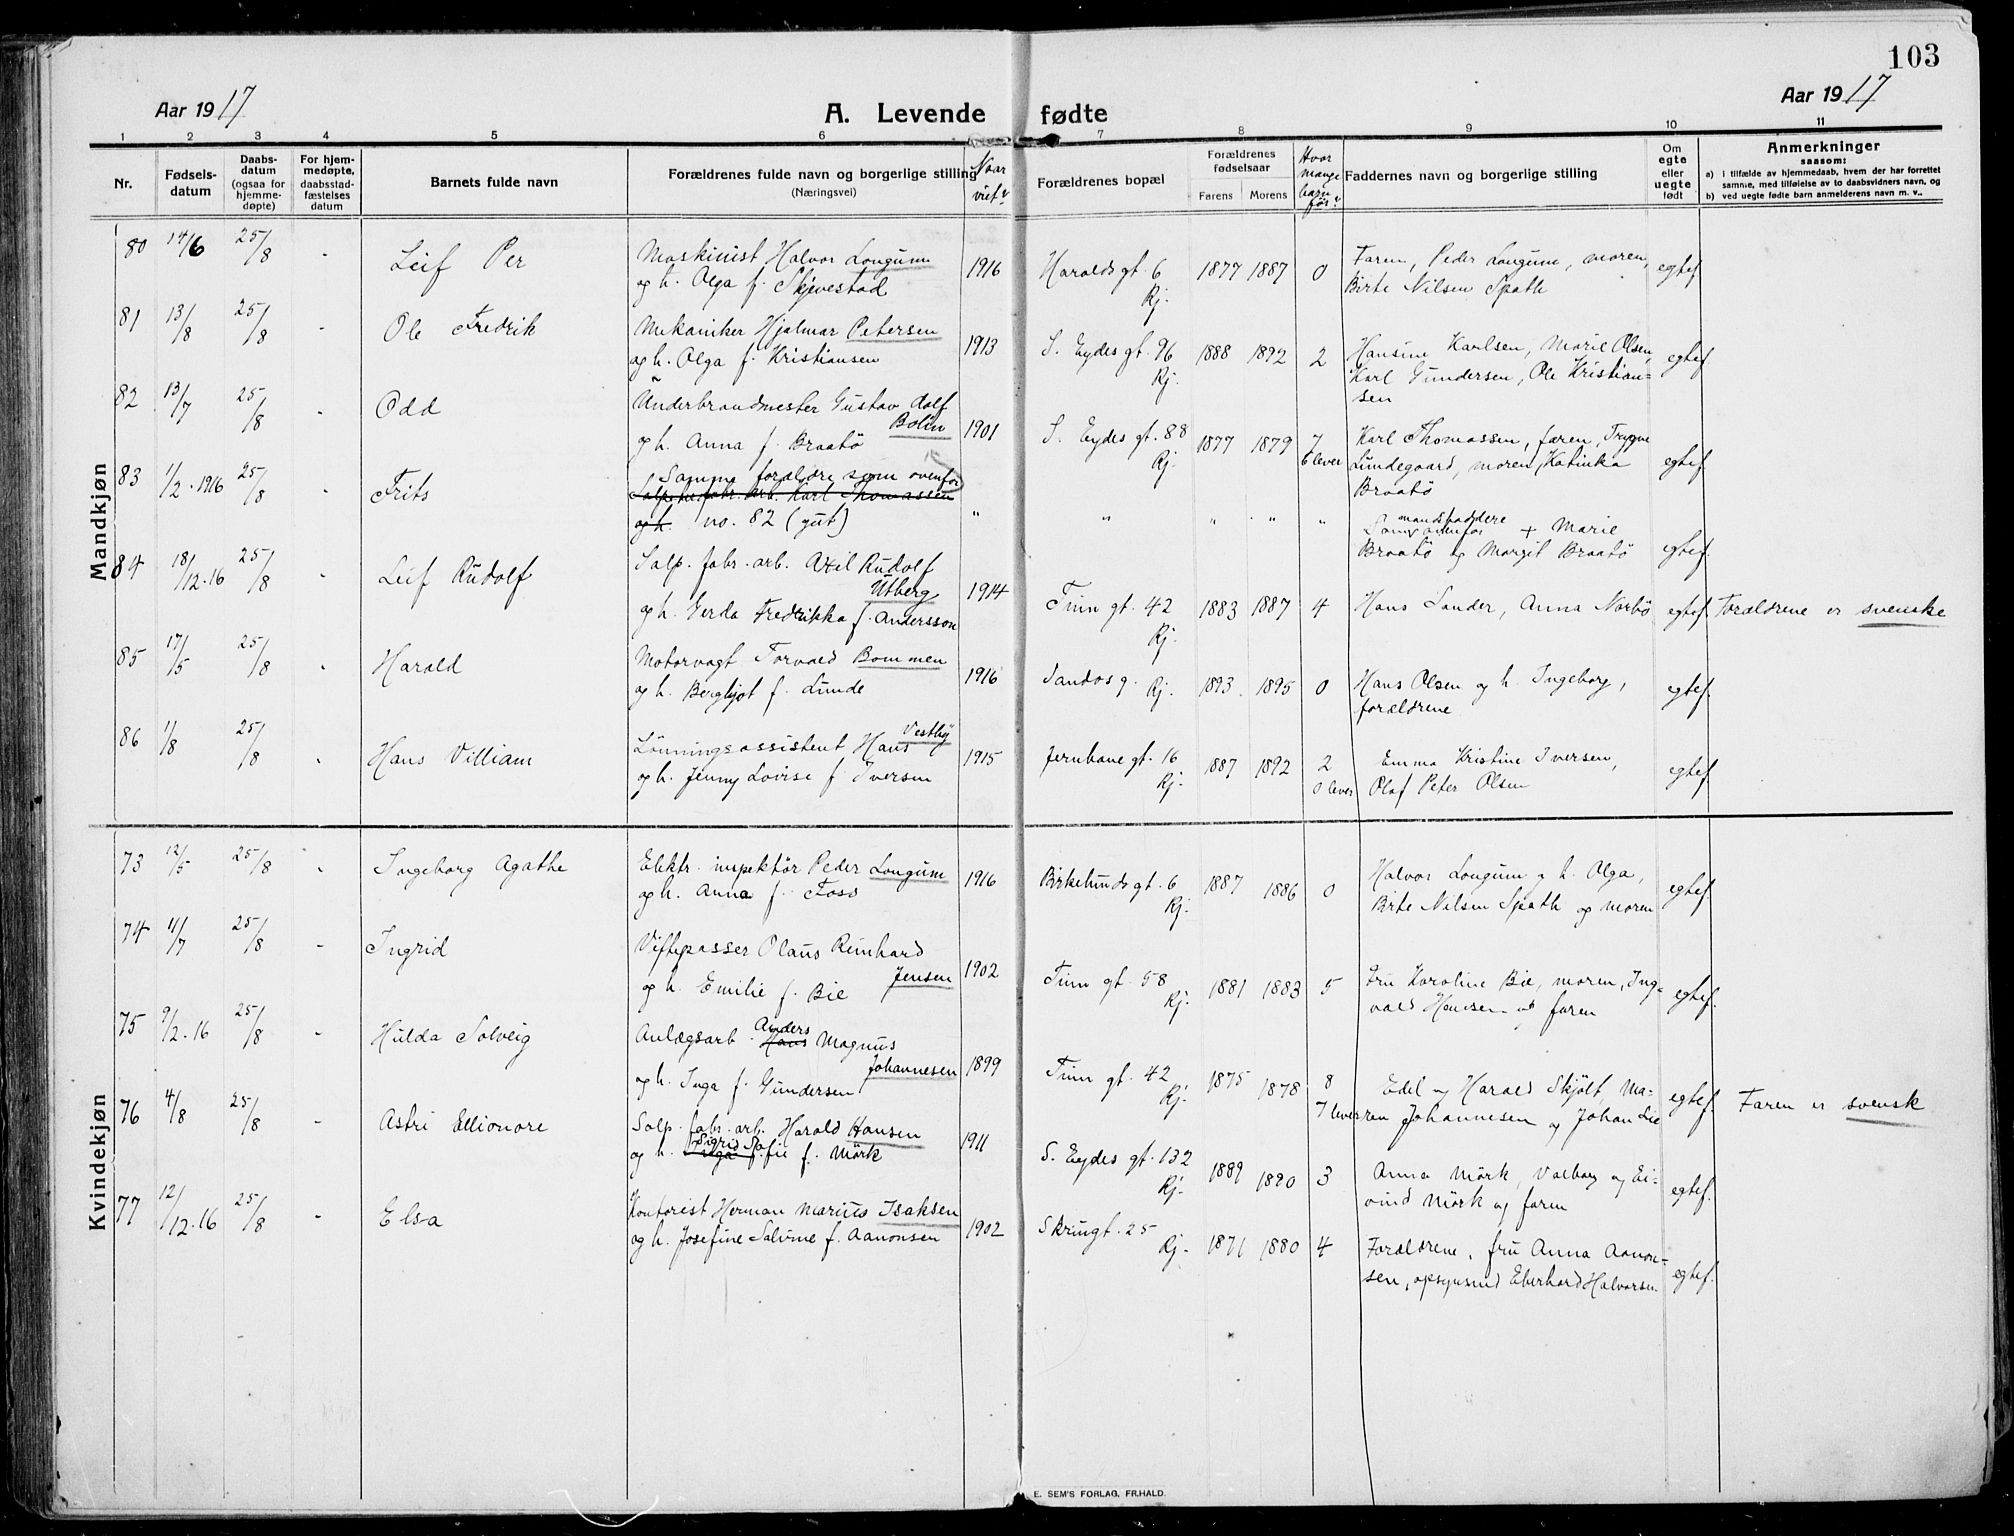 103
Aar 1917 A. Levende fødte Aar 1917
1 2 3 4 5 6 7 8 9 10 11
Nr. Fødsels-datum Daabs-datum (ogsaa for hjemme-døpte) For hjem-medøpte, daabsstad-fæstelses datum Barnets fulde navn Forældrenes fulde navn og borgerlige stilling (Næringsvei) Naar viet? Forældrenes bopæl Forældrenes fødselsaar Farens Morens Hvor mange barn før? Faddernes navn og borgerlige stilling Om egte eller uegte født Anmerkninger saasom:
a) i tilfælde av hjemmedaab, hvem der har forrettet samme, med tilføielse av to daabsvidners navn, og
b) ved uegte fødte barn anmelderens navn m. v..
Mandkjøn
80 14/6 25/8 - Leif Per Maskinist Halvor Longum 1916 Haralds gt. 6 1877 1887 0 Faren, Peder Longum, moren, egtef.
og h. Olga f. Skjevestad Rj. Birte Nilsen Spath
81 13/8 25/8 - Ole Fredrik Mekaniker Hjalmar Petersen 1913 S. Eydes gt. 96 1888 1892 2 Hansine Karlsen, Marie Olsen, egtef.
og h. Olga f. Kristiansen Rj. Karl Gundersen, Ole Kristian=
sen
82 13/7 25/8 - Odd Underbrandmester Gustav Adolf
Bolin 1901 S. Eydes gt. 88 1877 1879 7 Karl Thomassen, faren, Trygve
og h. Anna f. Braatö Rj. 6 lever Lundegaard, moren, Katinka egtef.
Braatö
83 1/2. 1916 25/8 - Frits Samme forældre som ovenfor
Salpeterfabr. arb. Karl Thomassen
og h. no. 82 (gut) " " " " " mandsfaddere
Som ovenfor + Marie
Braatö og Margit Braatö egtef.
84 18/12. 16 25/8 - Leif Rudolf Salp. fabr. arb. Axel Rudolf
Utberg 1914 Tinn gt. 42 1883 1887 4 Hans Sander, Anna Narbö egtef. Forældrene er svenske
og h. Gerda Fredrikka f. Andersson Rj.
85 17/5 25/8 - Harald Motorvagt Torvald Bommen 1916 Sandos g. Rj. 1893 1895 0 Hans Olsen og h. Ingeborg, egtef.
og h. Bergljot f. Lunde forældrene
86 1/8 25/8 - Hans Villiam Lönningsassistent Hans Vestby 1915 Jernbane gt. 16 1887 1892 2 Emma Kristine Iversen, egtef.
og h. Jenny Lovise f. Iversen Rj. 0 lever Olaf Peter Olsen
Kvindekjøn
73 12/5 25/8 - Ingeborg Agathe Elektr. inspektör Peder Longum 1916 Birkelunds gt. 6 1887 1886 0 Halvor Longum og h. Olga, egtef.
og h. Anna f. Foss Rj. Birte Nilsen Spath og moren
74 11/7 25/8 - Ingrid Viftepasser Olaus Reinhard
Jensen 1902 Tinn gt. 58 1881 1883 5 Fru Karoline Bie, moren, Ing= egtef.
og h. Emilie f. Bie Rj. vald Hansen og faren
75 9/2. 16 25/8 - Hulda Solveig Anlægsarb. Anders Hans Magnus
Johannesen 1899 Tinn gt. 42 1875 1878 8 Edel og Harald Skjölt, Ma= egtef. Faren er svensk
og h. Inga f. Gundersen Rj. 7 lever ren Johannesen og Johan Lie
76 4/8 25/8 - Astri Ellionore Salp. fabr. arb. Harald Hansen 1911 S. Eydes gt. 132 1889 1890 3 Anna Mörk, Valborg og Ei= egtef.
og h. Sigrid Sofie f. Mörk Rj. vind Mörk og faren
77 12/12. 16 25/8 - Elsa Kontorist Herman Marius Isaksen 1902 Skringt. 25 1871 1880 4 Forældrene, fru Anna Aanon= egtef.
og h. Josefine Salvine f. Aanonsen Rj. sen, opsynsmd Eberhard Halvorsen
E. SEM'S FORLAG, FR.HALD.